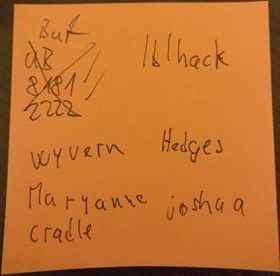 But
UB
8181
2222
lblhack
wyvern Hedges
Maryanne joshua
cradle